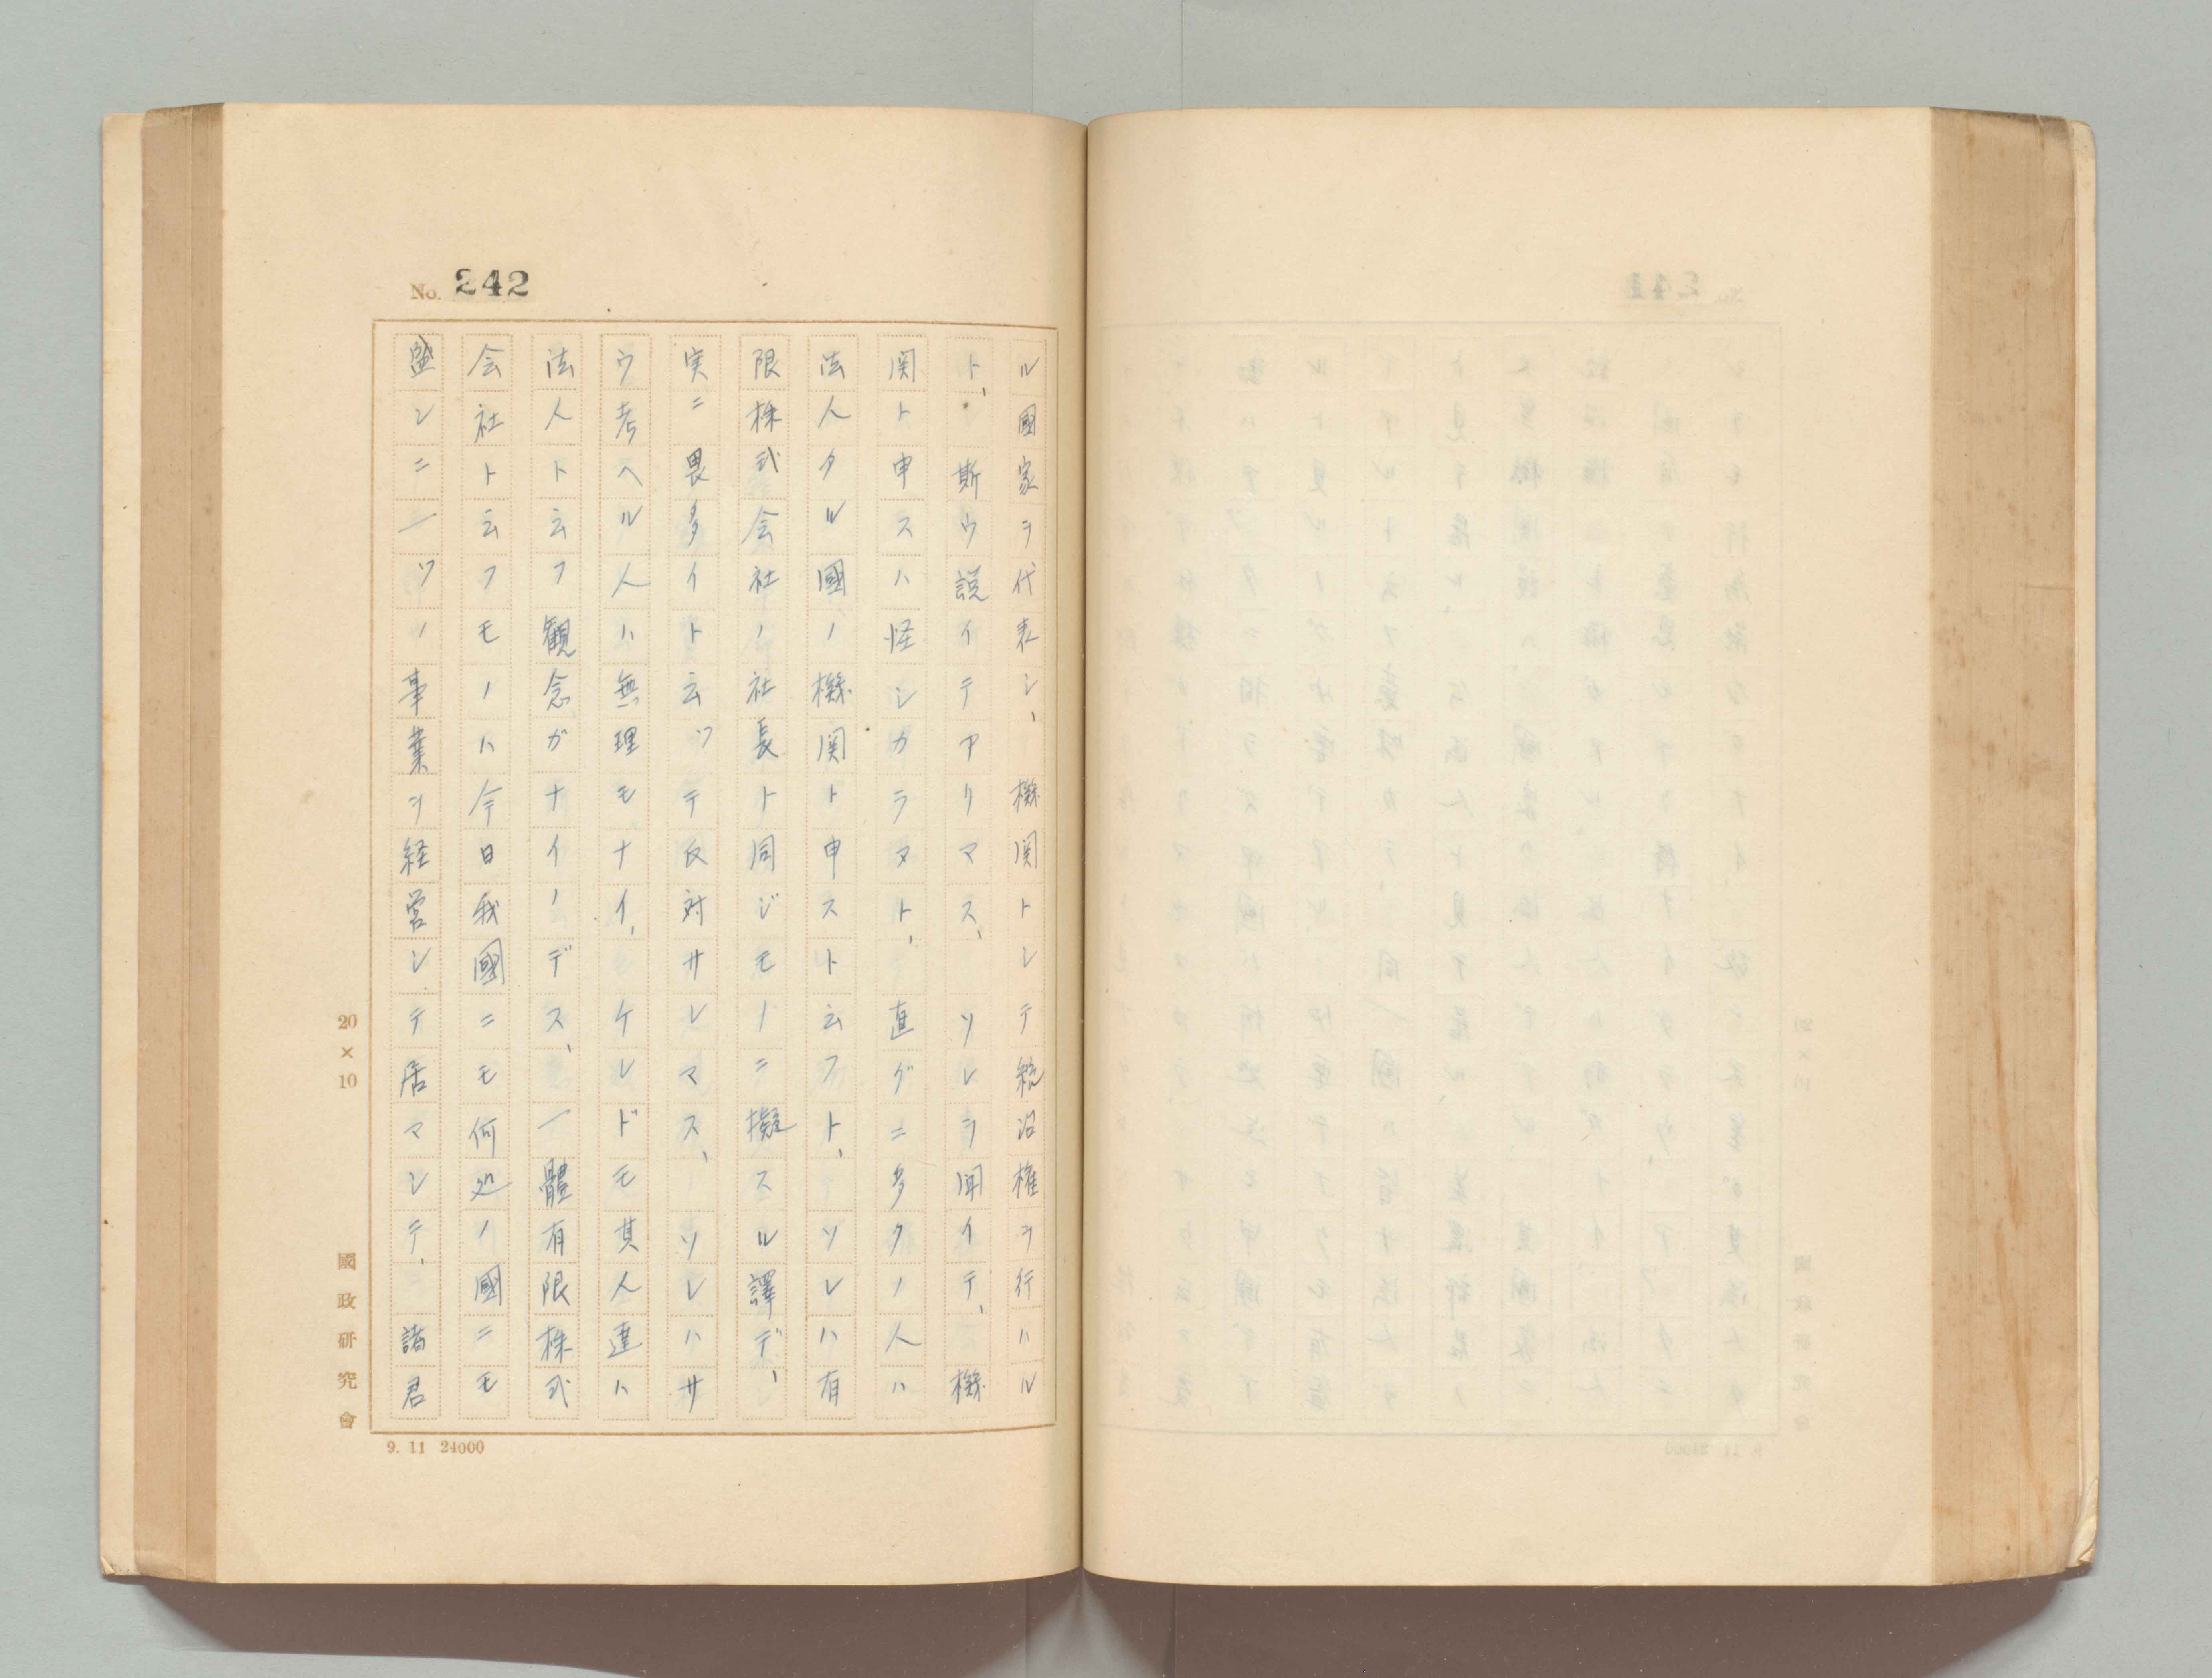 No. 242
ル國家ヲ代表シ、機関トシテ統治権ヲ行ハル
ト、斯ウ説イテアリマス、ソレヲ聞イテ、機
関ト申スハ怪シカラヌト、直グニ多クノ人ハ
法人タル國ノ機関ト申スト云フト、ソレハ有
限株式会社ノ社長ト同ジモノニ擬スル譯デ、
実ニ畏多イト云ツテ反対サレマス、ソレハサ
ウ考ヘル人ハ無理モナイ、ケレドモ其人達ハ
法人ト云フ観念ガナイノデス、一體有限株式
会社ト云フモノハ今日我國ニモ何処ノ國ニモ
盛ンニ一ツノ事業ヲ経営シテ居マシテ、諸君
20×10
國政研究會
9. 11 24000